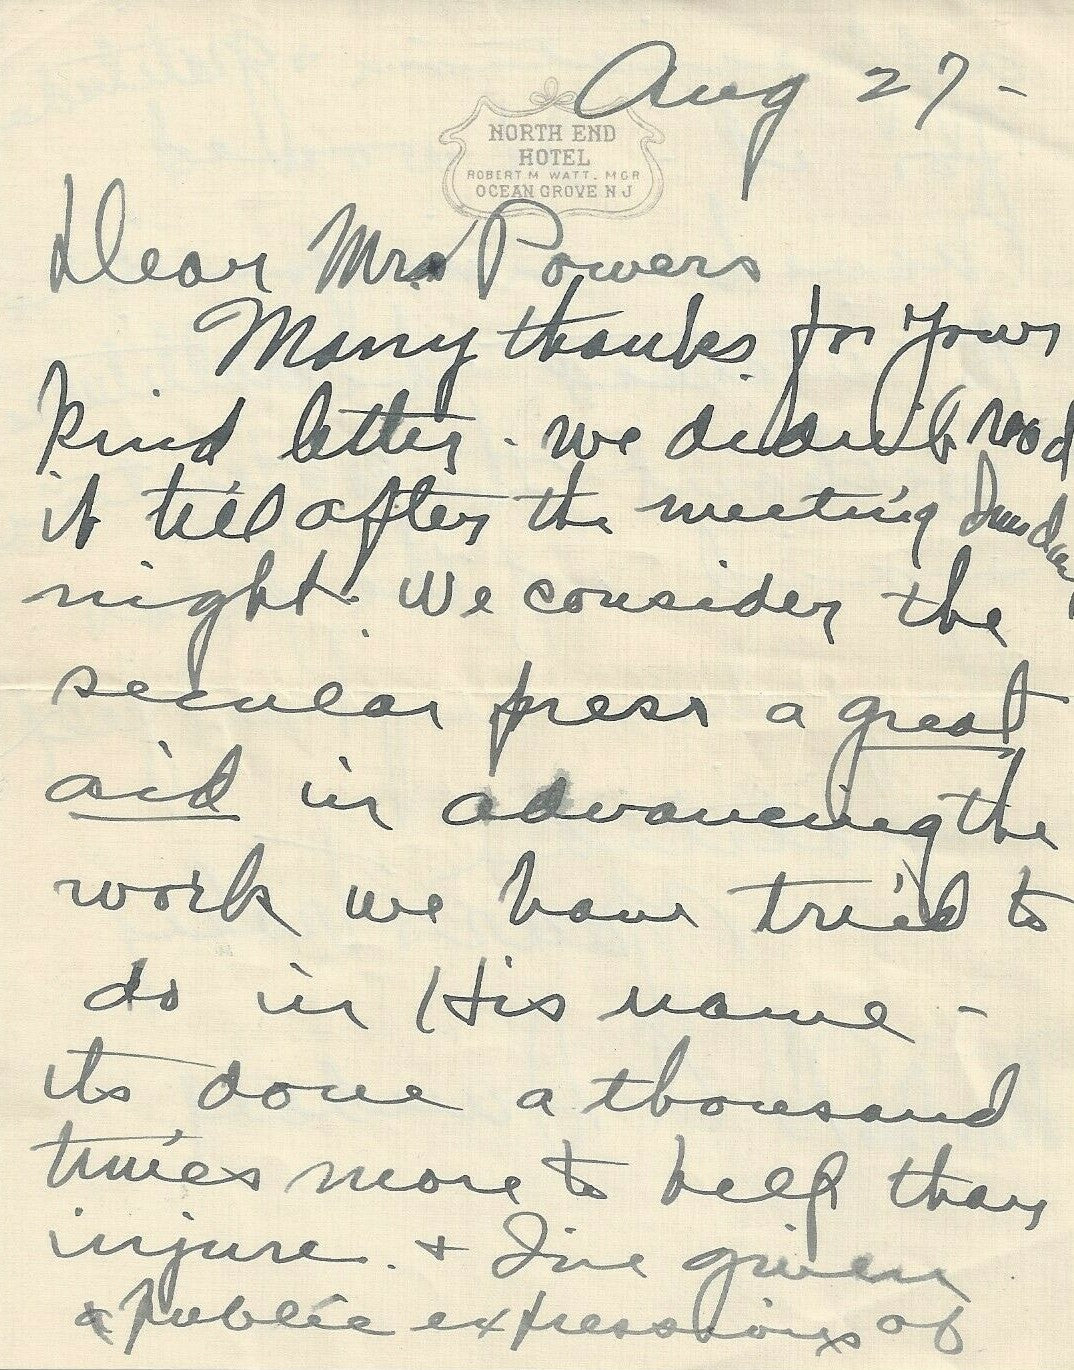 Aug 27 -
NORTH END
HOTEL
ROBERT M WATT. MGR
OCEAN GROVE N J
Dear Mrs Powers
Many thanks for your
kind letter - we didn't read
it till after the meeting Sunday
night. We consider the
secular press a great
aid in advancing the
work we have tried to
do in His name -
its done a thousand
times more to help than
injure. + I've given
public expressions of